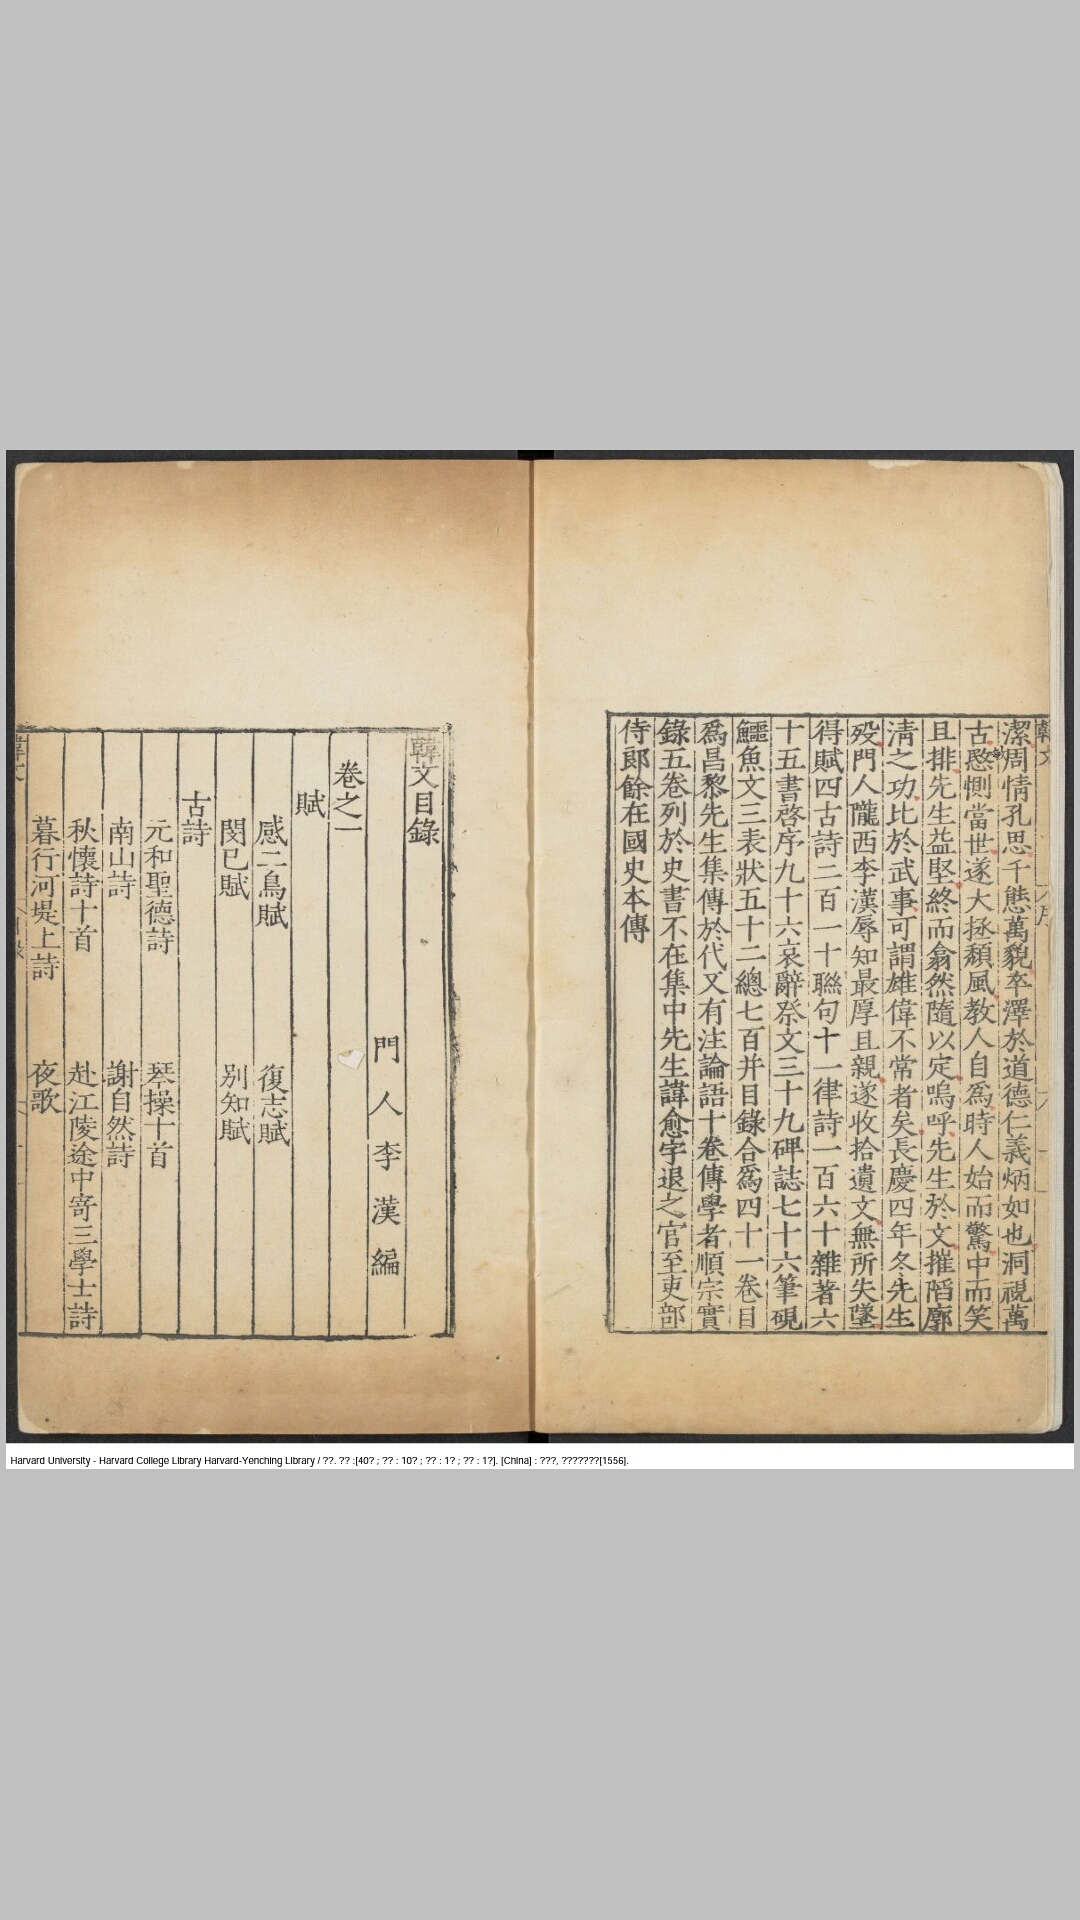 潔周情孔思千態萬貌卒澤於道德仁義炳如也洞視萬
古愍惻當世遂大拯頹風教人自爲時人始而驚中而笑
且排先生益堅終而翕然隨以定嗚呼先生於文摧陷廓
清之功比於武事可謂雄偉不常者矣長慶四年冬先生
歿門人隴西李漢辱知最厚且親遂收拾遺文無所失墜
得賦四古詩二百一十聮句十一律詩一百六十雜著六
十五書啓序九十六哀辭祭文三十九碑誌七十六筆硯
鱷魚文三表狀五十二總七百并目錄合爲四十一卷目
爲昌黎先生集傳於代又有注論語十卷傳學者順宗實
錄五卷列於史書不在集中先生諱愈字退之官至吏部
侍郎餘在國史本傳
韓文目錄
門人李漢編
卷之一
賦
感二鳥賦 復志賦
閔已賦 別知賦
古詩
元和聖德詩 琴操十首
南山詩 謝自然詩
秋懷詩十首 赴江陵途中寄三學士詩
暮行河堤上詩 夜歌
Harvard University - Harvard College Library Harvard-Yenching Library / ??. ?? :[40? ; ?? : 10? ; ?? : 1? ; ?? : 1?]. [China] : ???, ???????[1556].